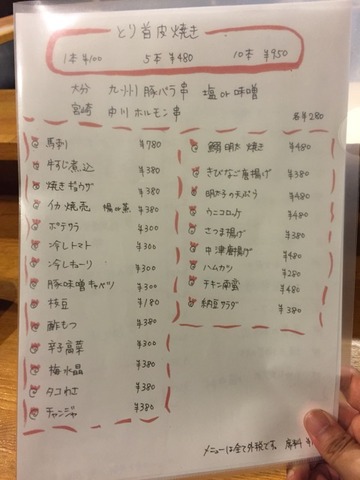 とり首皮焼き
1本 ¥100 5本 ¥480 10本 ¥950
大分 九州豚バラ串 塩or味噌
宮崎 中川ホルモン串
各¥280
馬刺 ¥780
牛すじ煮込 ¥380
焼き餃ウザ ¥380
イカ焼売 揚or蒸 ¥380
ポテサラ ¥300
冷しトマト ¥300
冷しキューリ ¥300
豚味噌キャベツ ¥300
枝豆 ¥180
酢もつ ¥380
辛子高菜 ¥300
梅水晶 ¥380
タコわさ ¥380
チャンジャ ¥380
鰯明太焼き ¥480
きびなご唐揚げ ¥480
明太子天ぷら ¥480
ウニコロッケ ¥480
さつま揚げ ¥380
中津唐揚げ ¥480
ハムカツ ¥280
チキン南蛮 ¥480
納豆サラダ ¥380
メニューは全て外税です。席料